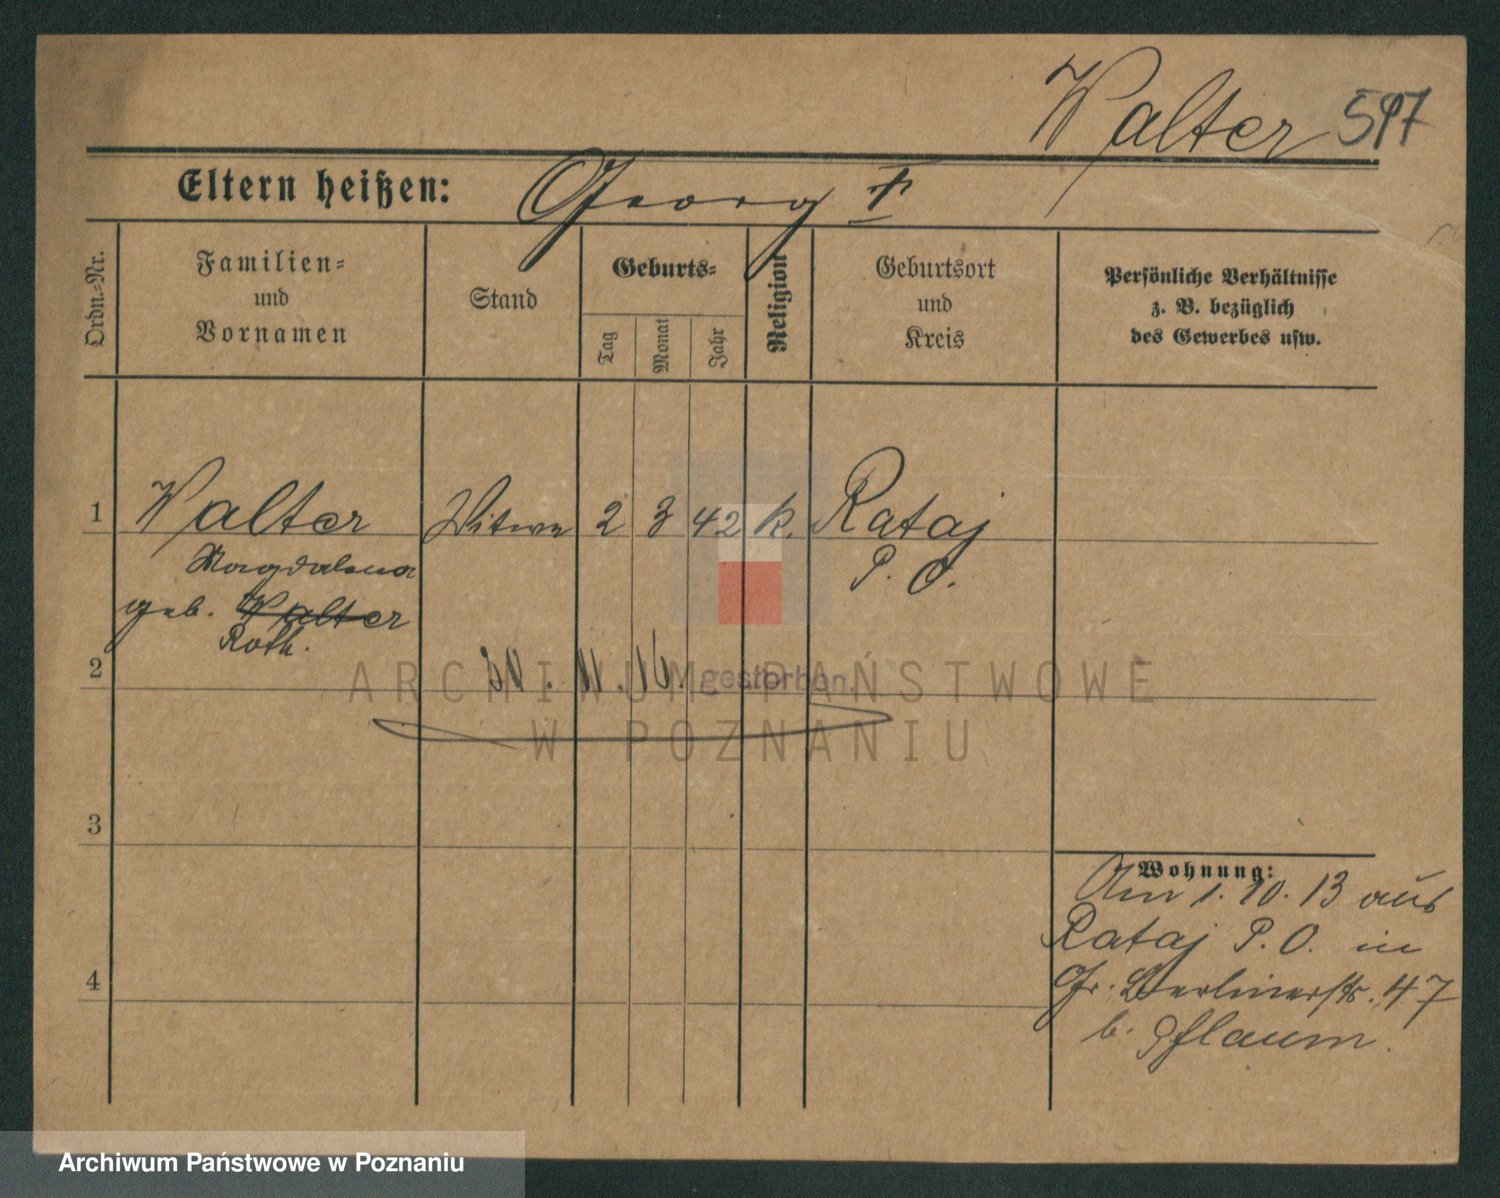 Walter 597
Eltern heißen: Georg †
Ordn.-Nr.
Familien-
und
Vornamen
Stand
Geburts-
Tag
Monat
Jahr
Religion
Geburtsort
und
Kreis
Persönliche Verhältnisse
z. B. bezüglich
des Gewerbes usw.
1 Walter Witwe 2 3 42 k. Rataj
Magdalena P. O.
geb. Walter
Roth.
2 11. 16. gestorben.
ARCHIWUM PAŃSTWOWE
W POZNANIU
3
Wohnung:
Am 1. 10. 13 aus
Rataj P. O. in
4 Gr. Berlinerstr. 47
b. Pflaum.
Archiwum Państwowe w Poznaniu